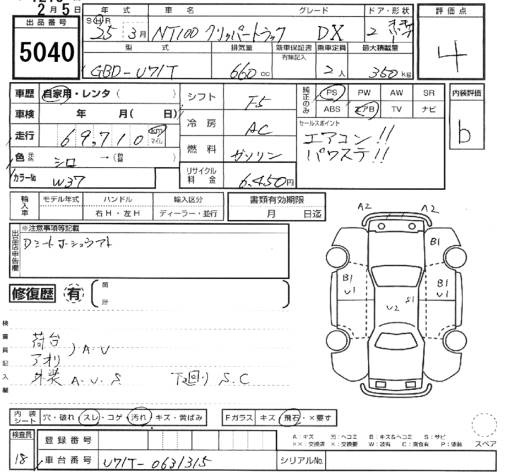 2月5日
出品番号
5040
年式 車名 グレード ドア・形状
S H R 25年 3月 NT100クリッパートラック DX 2
型式 排気量 新車保証書 有無記入 乗車定員 最大積載量
GBD-U71T 660cc 2人 350kg
評価点
4
内装評価
b
車歴 自家用・レンタ( )
車検 年 月( )
走行 69,710 km マイル
色 シロ → (替)
カラーNo W37
シフト F5
冷房 AC
燃料 ガソリン
リサイクル料金 6,450円
純正のみ PS PW AW SR
ABS エアB TV ナビ
セールスポイント
エアコン!!
パワステ!!
輸入車 モデル年式 ハンドル 輸入区分
右H・左H ディーラー・並行
書類有効期限
月 日迄
出品店申告欄
※注意事項等記載
修復歴 有
箇所
検査員記入欄
荷台
アオリ ) A・U
外装 A・U・S 下回り S・C
A2 A2
B1
B1 U1
B1 U1
S1
U2
内装シート 穴・破れ スレ・コゲ 汚れ キズ・黄ばみ
Fガラス キズ 飛石・×要す
A:キズ U:ヘコミ B:キズ&ヘコミ S:サビ
××:交換済 ×:要交換 W:波有 C:腐食有 P:塗装 スペア
検査員 18
登録番号
車台番号 U71T-0631315
シリアルNo.